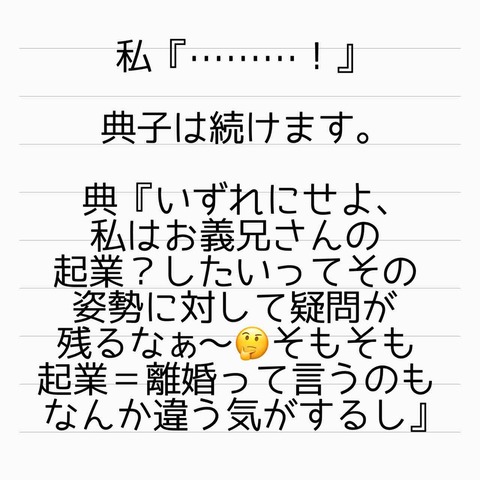 私『………！』
典子は続けます。
典『いずれにせよ、
私はお義兄さんの
起業？したいってその
姿勢に対して疑問が
残るなぁ〜🤔そもそも
起業＝離婚って言うのも
なんか違う気がするし』